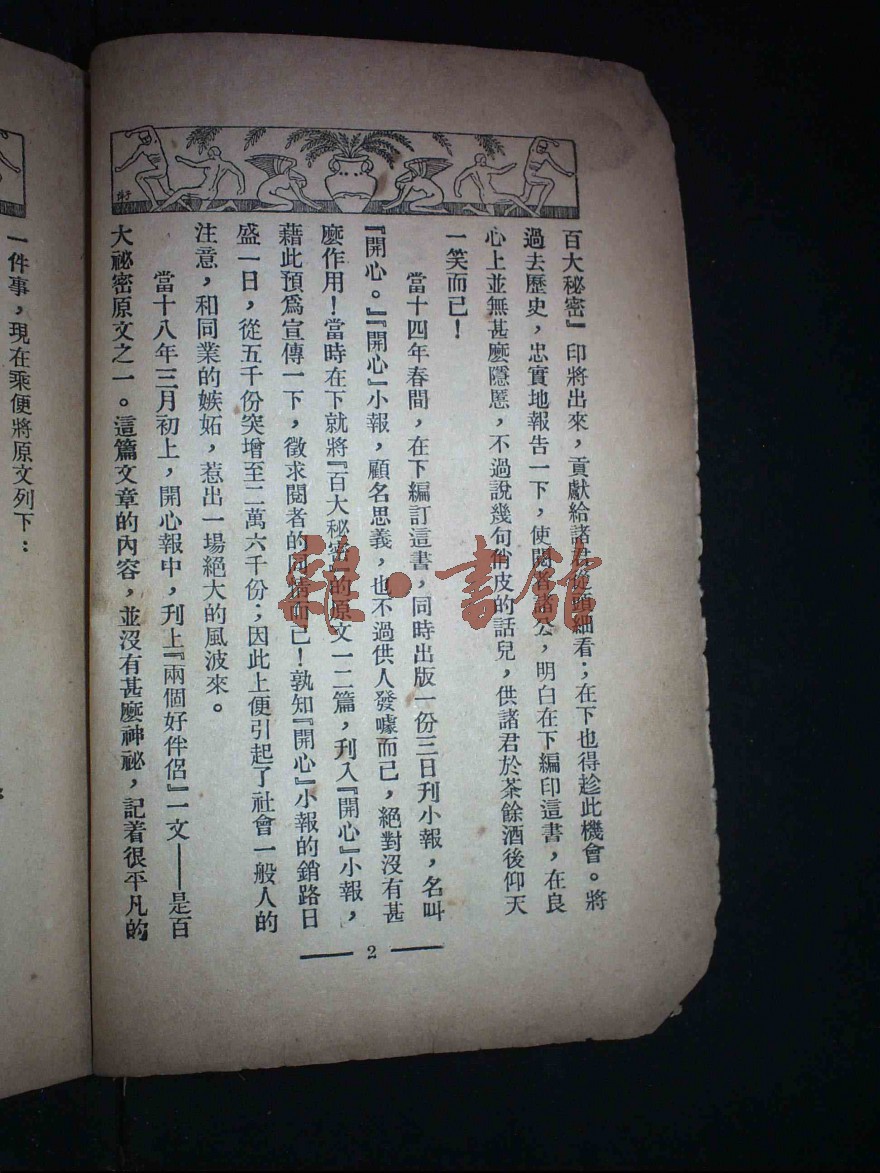 百大秘密』印將出來，貢獻給諸君從頭細看；在下也得趁此機會。將
過去歷史，忠實地報告一下，使閱者諸公，明白在下編印這書，在良
心上並無甚麼隱慝，不過說幾句俏皮的話兒，供諸君於茶餘酒後仰天
一笑而已！
當十四年春間，在下編訂這書，同時出版一份三日刊小報，名叫
『開心。』『開心』小報，顧名思義，也不過供人發噱而已，絕對沒有甚
麼作用！當時在下就將『百大秘密』的原文一二篇，刋入『開心』小報，
藉此預爲宣傳一下，徵求閱者的同情而已！孰知『開心』小報的銷路日
盛一日，從五千份突增至二萬六千份；因此上便引起了社會一般人的
注意，和同業的嫉妬，惹出一場絕大的風波來。
當十八年三月初上，開心報中，刋上『兩個好伴侶』一文——是百
大祕密原文之一。這篇文章的內容，並沒有甚麼神祕，記着很平凡的
2
一件事，現在乘便將原文列下：
雜·書館